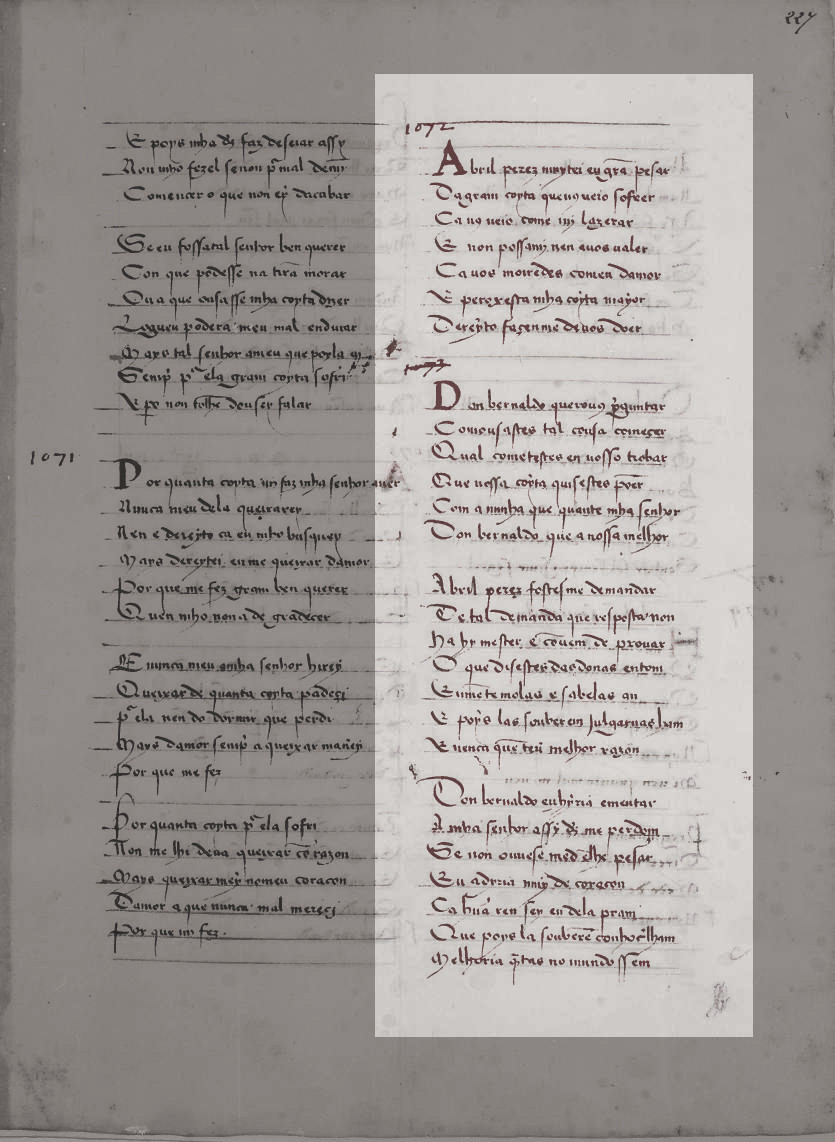 227
E poys mha d's faz deseiar assy
Non mho fezel senon p'mal demī
Comencer o que non ey dacabar
Se eu fossatal senhor ben querer
Con que podesse na tirā morar
Ou a que ousasse mha coyta dizer
Logueu podera meu mal endurar
Mays tal senhor ameu que poyla ui
Semp' p' ela gram coyta sofri
E po non tolhe deuser falar
1071
Por quanta coyta mi faz mha senhor auer
Nunca meu dela queixarey
Nen e dereyto ca eu mho busquey
Mays dereytei en me queixar damor
Por que me fez gram ben querer
Quen mho non a de gradecer
E nunca meu amha senhor hirey
Queixar de quanta coyta padeçi
p' ela nen do dormir que perdi
Mays damor semp' a queixar mauey
Por que me fez
Por quanta coyta p' ela sofri
Non me lhi deua queixar cō razon
Mays queixar mey nomeu coraçon
Damor a que nunca mal mereçi
Por que mi fez.
1072
Abril perez muytei eu grā pesar
Dagram coyta queuus ueio sofrer
Ca uus ueio come mi lazerar
E non possamj nen auos ualer
Ca uos moiredes comeu damor
E pero xesta mha coyta mayor
Dereyto façenme deuos doer
1073
Don bernaldo querouus p'guntar
Comousastes tal cousa começer
Qual cometestes en uosso trobar
Que uossa coyta quisestes poer
Com a minha que quante mha senhor
Don bernaldo que a uossa melhor
Abril perez fostesme demandar
De tal demanda que resposta non
ha hy mester e conuem de prouar
O que disestes das donas entom
Enmēte molas e sabelas an
E poys las souberem julgarnas ham
E uenca quē teu melhor razon
Don bernaldo eu hyria ementar
A mha senhor assy d's me perdom
Se non ouuese med'elhe pesar
Eu adiria muy de coraçon
Ca hūa ren sey eu dela pram
Que poys la souberē conhoc'lham
Melhoria q'tas no mundo ssem